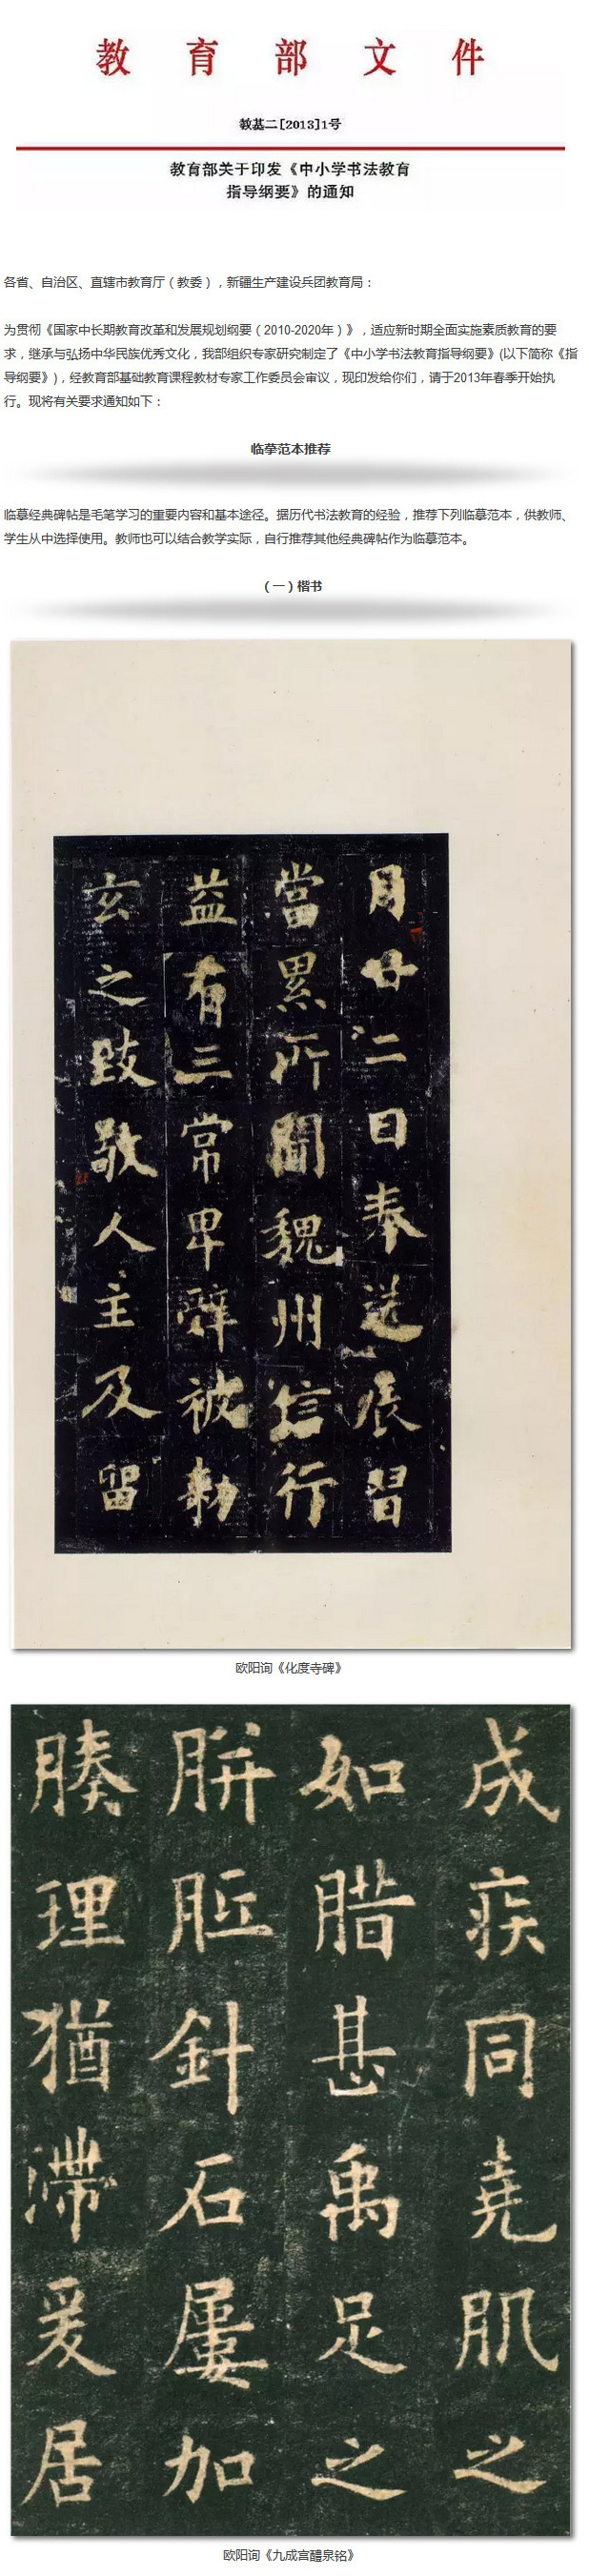 教育部文件
教基二[2013]1号
教育部关于印发《中小学书法教育
指导纲要》的通知
各省、自治区、直辖市教育厅（教委），新疆生产建设兵团教育局：
为贯彻《国家中长期教育改革和发展规划纲要（2010-2020年）》，适应新时期全面实施素质教育的要
求，继承与弘扬中华民族优秀文化，我部组织专家研究制定了《中小学书法教育指导纲要》(以下简称《指
导纲要》)，经教育部基础教育课程教材专家工作委员会审议，现印发给你们，请于2013年春季开始执
行。现将有关要求通知如下：
临摹范本推荐
临摹经典碑帖是毛笔学习的重要内容和基本途径。据历代书法教育的经验，推荐下列临摹范本，供教师、
学生从中选择使用。教师也可以结合教学实际，自行推荐其他经典碑帖作为临摹范本。
（一）楷书
月廿二日奉送展習
當累所聞魏州信行
益有三常卑辭被勅
玄之跂敬人主及留
欧阳询《化度寺碑》
成疾同堯肌之
如腊甚禹足之
胼胝針石屢加
腠理猶滯爰居
欧阳询《九成宫醴泉铭》